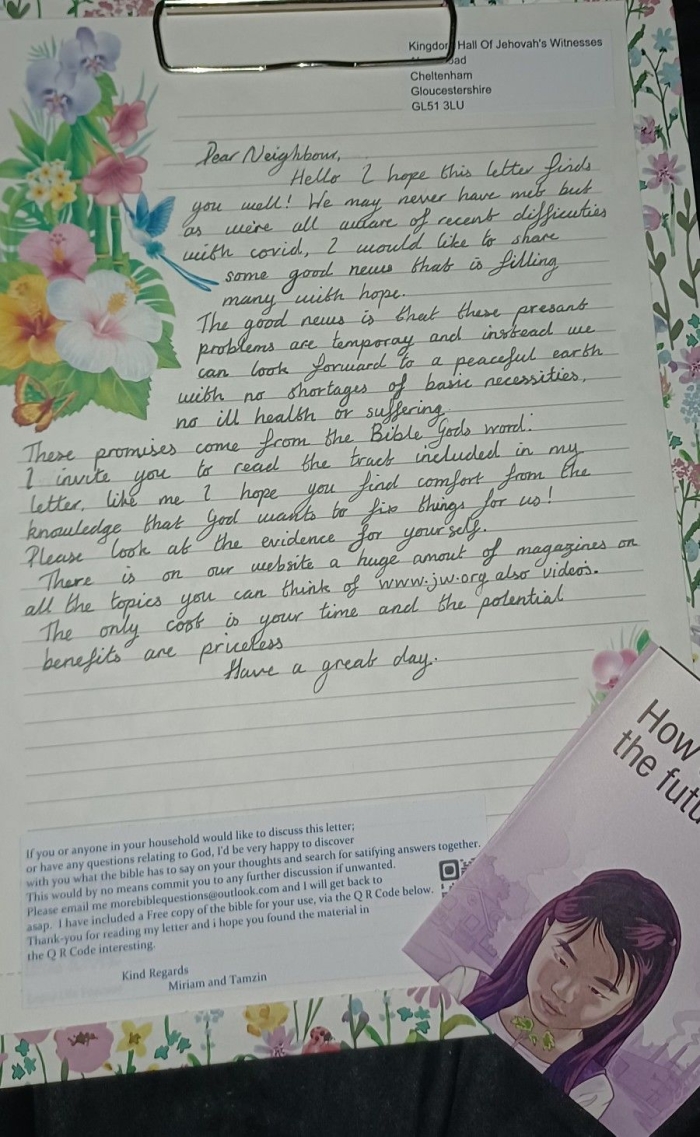 Kingdom Hall Of Jehovah's Witnesses
Cheltenham
Gloucestershire
GL51 3LU
Dear Neighbour,
Hello I hope this letter finds
you well! We may never have met but
as we're all aware of recent difficulties
with covid, I would like to share
some good news that is filling
many with hope.
The good news is that these presant
problems are temporay and instead we
can look forward to a peaceful earth
with no shortages of basic necessities,
no ill health or suffering.
These promises come from the Bible Gods word.
I invite you to read the tract included in my
letter, like me I hope you find comfort from the
knowledge that God wants to fix things for us!
Please look at the evidence for yourself.
There is on our website a huge amout of magazines on
all the topics you can think of www.jw.org also videos.
The only cost is your time and the potential
benefits are priceless
Have a great day.
If you or anyone in your household would like to discuss this letter;
or have any questions relating to God, I'd be very happy to discover
with you what the bible has to say on your thoughts and search for satifying answers together.
This would by no means commit you to any further discussion if unwanted.
Please email me morebiblequestions@outlook.com and I will get back to
asap. I have included a Free copy of the bible for your use, via the Q R Code below.
Thank-you for reading my letter and i hope you found the material in
the Q R Code interesting.
Kind Regards
Miriam and Tamzin
How
the futu